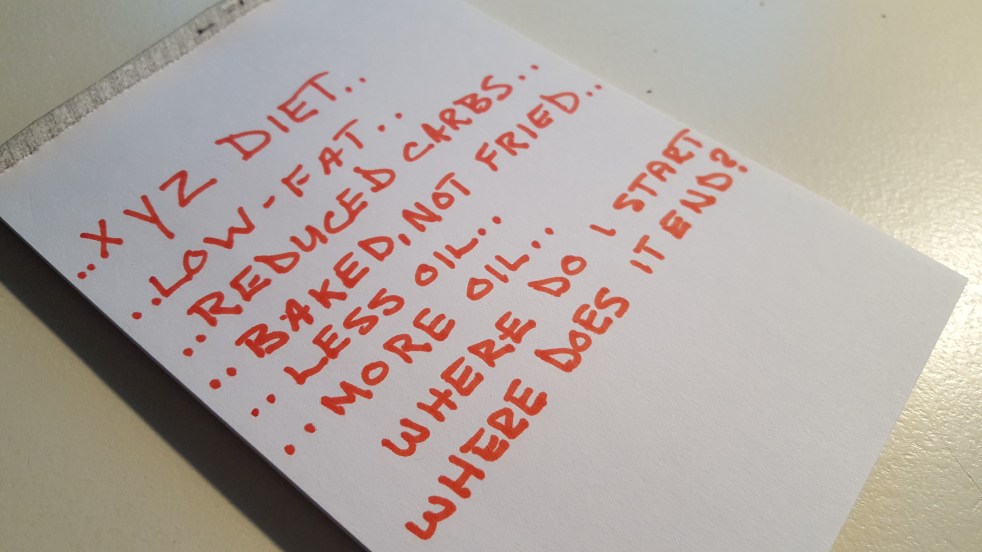 ..XYZ DIET..
..LOW-FAT..
..REDUCED CARBS..
..BAKED, NOT FRIED..
..LESS OIL..
..MORE OIL..
WHERE DO I START
WHERE DOES IT END?